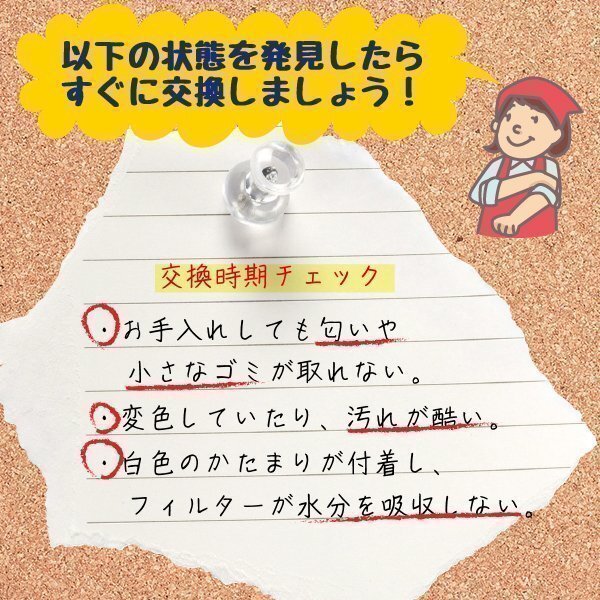 以下の状態を発見したら
すぐに交換しましょう！
交換時期チェック
・お手入れしても匂いや
小さなゴミが取れない。
・変色していたり、汚れが酷い。
・白色のかたまりが付着し、
フィルターが水分を吸収しない。